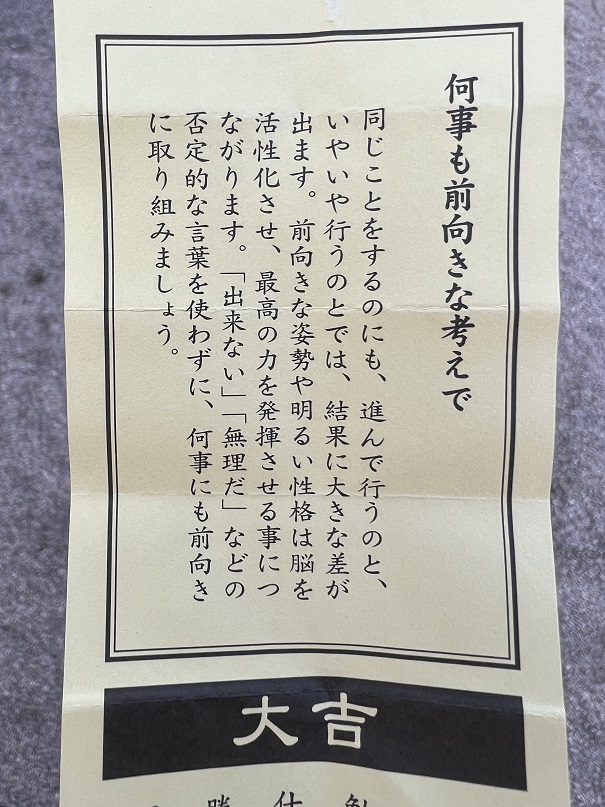 何事も前向きな考えで
同じことをするのにも、進んで行うのと、
いやいや行うのとでは、結果に大きな差が
出ます。前向きな姿勢や明るい性格は脳を
活性化させ、最高の力を発揮させる事につ
ながります。「出来ない」「無理だ」などの
否定的な言葉を使わずに、何事にも前向き
に取り組みましょう。
大吉